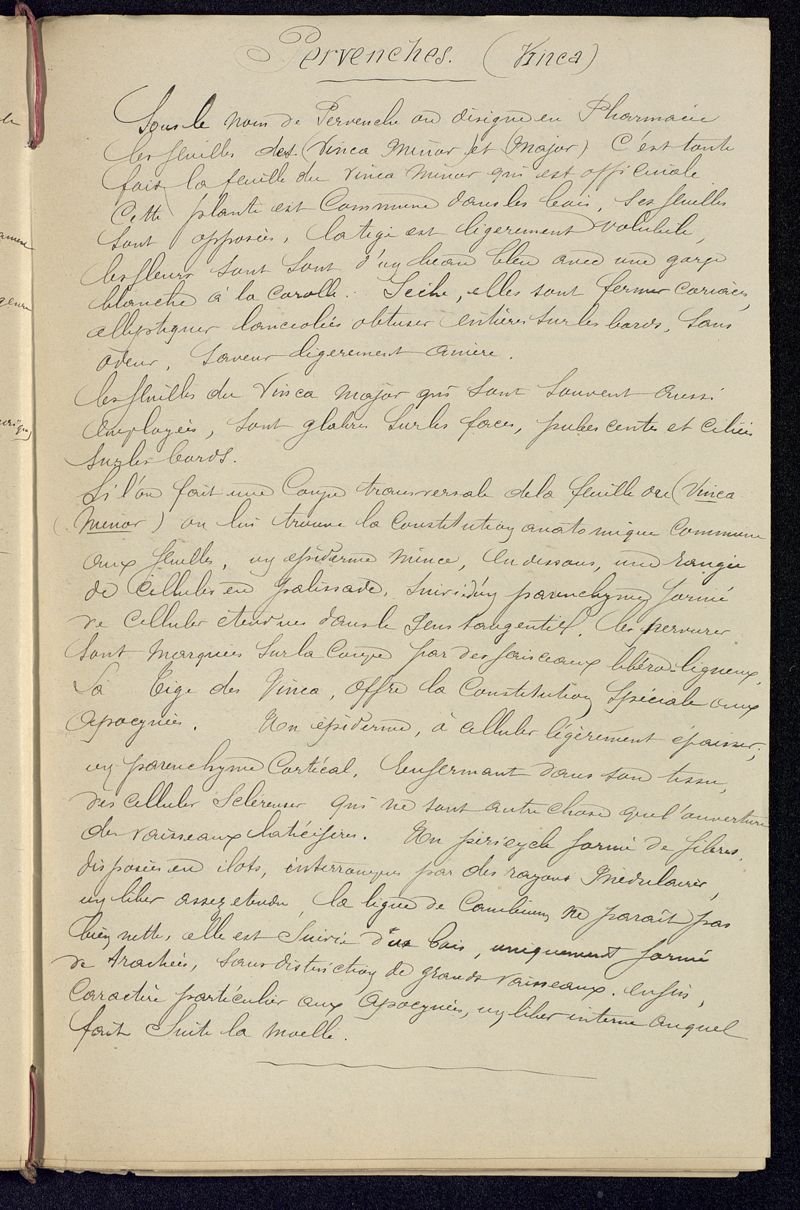 Pervenches. (Vinca)
Sous le nom de Pervenche on désigne en Pharmacie
les feuilles des (Vinca Minor) et (Major) C'est toute
fois la feuille du Vinca Minor qui est officinale
Cette plante est Commune dans les bois, Ses feuilles
sont opposées, la tige est légèrement volubile,
les fleurs sont sont d'un beau bleu avec une gorge
blanche à la corolle. Seche, elles sont fermes coriaces,
elliptiques lancéolées obtuses entières sur les bords, sans
odeur, saveur légèrement amère.
les feuilles du Vinca Major qui sont souvent aussi
employées, sont glabres sur les faces, pubescentes et ciliées
sur les bords.
Si l'on fait une Coupe transversale de la feuille de (Vinca
Minor) on lui trouve la Constitution anatomique Commune
aux feuilles, un épiderme mince, en dessous, une rangée
de Cellules en palissade, suivi d'un parenchyme formé
de Cellules étendues dans le sens tangentiel, les nervures
sont marquées sur la coupe par des faisceaux libéro-ligneux,
La Tige des Vinca, offre la Constitution Spéciale aux
Apocynées. Un épiderme, à cellules légèrement épaisses,
un parenchyme Cortical, renfermant dans son tissu,
des Cellules Scléreuses qui ne sont autre chose que l'ouverture
des vaisseaux laticifères. Un péricycle formé de fibres,
disposées en ilots, interrompus par des rayons Médulaires,
un liber assez étendu, la ligne de Cambium ne paraît pas
bien nette, elle est suivie d'un bois, uniquement formé
de trachées, sans distinction de grands vaisseaux. enfin,
Caractère particulier aux Apocynées, un liber interne auquel
fait suite la moelle.